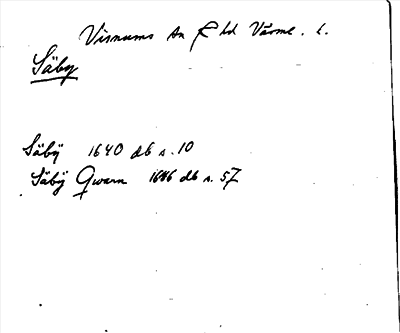 Visnums Kn Hd Värml. L.
Säby
Säbÿ 1640 db s. 10
Säbÿ Qwarn 1646 db s. 57